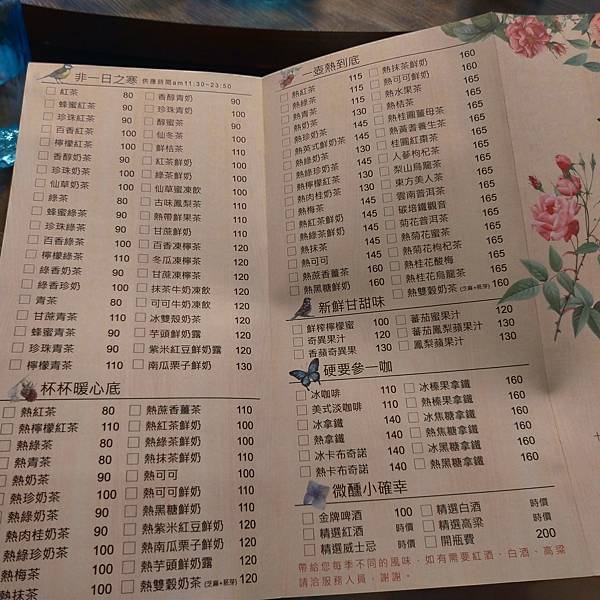 非一日之寒 供應時間am11:30~23:50
紅茶 80
蜂蜜紅茶 90
珍珠紅茶 90
百香紅茶 100
檸檬紅茶 100
香醇奶茶 90
珍珠奶茶 100
仙草奶茶 100
綠茶 80
蜂蜜綠茶 90
珍珠綠茶 90
百香綠茶 100
檸檬綠茶 110
綠香奶茶 90
綠香珍奶 100
青茶 80
甘蔗青茶 110
蜂蜜青茶 90
珍珠青茶 90
檸檬青茶 110
香醇青奶 90
珍珠青奶 100
醇蜜茶 90
仙冬茶 100
鮮桔茶 110
紅茶鮮奶 100
綠茶鮮奶 100
仙草蜜凍飲 100
古味鳳梨茶 110
熱帶鮮果茶 110
甘蔗鮮奶 110
百香凍檸茶 120
冬瓜凍檸茶 120
甘蔗凍檸茶 120
抹茶牛奶凍飲 120
可可牛奶凍飲 120
冰雙殼奶茶 120
芋頭鮮奶露 120
紫米紅豆鮮奶露 120
南瓜栗子鮮奶 130
杯杯暖心底
熱紅茶 80
熱檸檬紅茶 110
熱綠茶 80
熱青茶 80
熱奶茶 90
熱珍奶茶 100
熱綠奶茶 90
熱肉桂奶茶 100
熱綠珍奶茶 100
熱梅茶 100
熱抹茶 100
熱蔗香薑茶 110
熱紅茶鮮奶 100
熱綠茶鮮奶 100
熱抹茶鮮奶 110
熱可可 100
熱可可鮮奶 110
熱黑糖鮮奶 110
熱紫米紅豆鮮奶 120
熱南瓜栗子鮮奶 120
熱芋頭鮮奶露 120
熱雙穀奶茶 (芝麻+胚芽) 120
一壺熱到底
熱紅茶 115
熱綠茶 115
熱青茶 115
熱奶茶 130
熱珍奶茶 145
熱英式鮮奶茶 145
熱綠奶茶 130
熱綠珍奶茶 145
熱檸檬紅茶 130
熱肉桂奶茶 145
熱梅茶 145
熱紅茶鮮奶 145
熱綠茶鮮奶 145
熱抹茶 145
熱可可 145
熱蔗香薑茶 160
熱黑糖鮮奶 160
熱抹茶鮮奶 160
熱可可鮮奶 160
熱水果茶 165
熱桔茶 165
熱桂圓薑母茶 165
熱黃耆養生茶 165
桂圓紅棗茶 165
人蔘枸杞茶 165
梨山烏龍茶 165
東方美人茶 165
雲南普洱茶 165
碳培鐵觀音 165
菊花普洱茶 165
熱菊花蜜茶 165
熱菊花枸杞茶 165
熱桂花酸梅 165
熱桂花烏龍茶 165
熱雙穀奶茶 (芝麻+胚芽) 165
新鮮甘甜味
鮮榨檸檬蜜 100
奇異果汁 120
香蘋奇異果 130
蕃茄蜜果汁 120
蕃茄鳳蘋果汁 130
鳳梨蘋果汁 130
硬要參一咖
冰咖啡 110
美式淡咖啡 110
冰拿鐵 140
熱拿鐵 140
冰卡布奇諾 140
熱卡布奇諾 140
冰榛果拿鐵 160
熱榛果拿鐵 160
冰焦糖拿鐵 160
熱焦糖拿鐵 160
冰黑糖拿鐵 160
熱黑糖拿鐵 160
微醺小確幸
金牌啤酒 100
精選紅酒 時價
精選威士忌 時價
精選白酒 時價
精選高粱 時價
開瓶費 200
帶給您每季不同的風味，如有需要紅酒、白酒、高粱
請洽服務人員，謝謝。